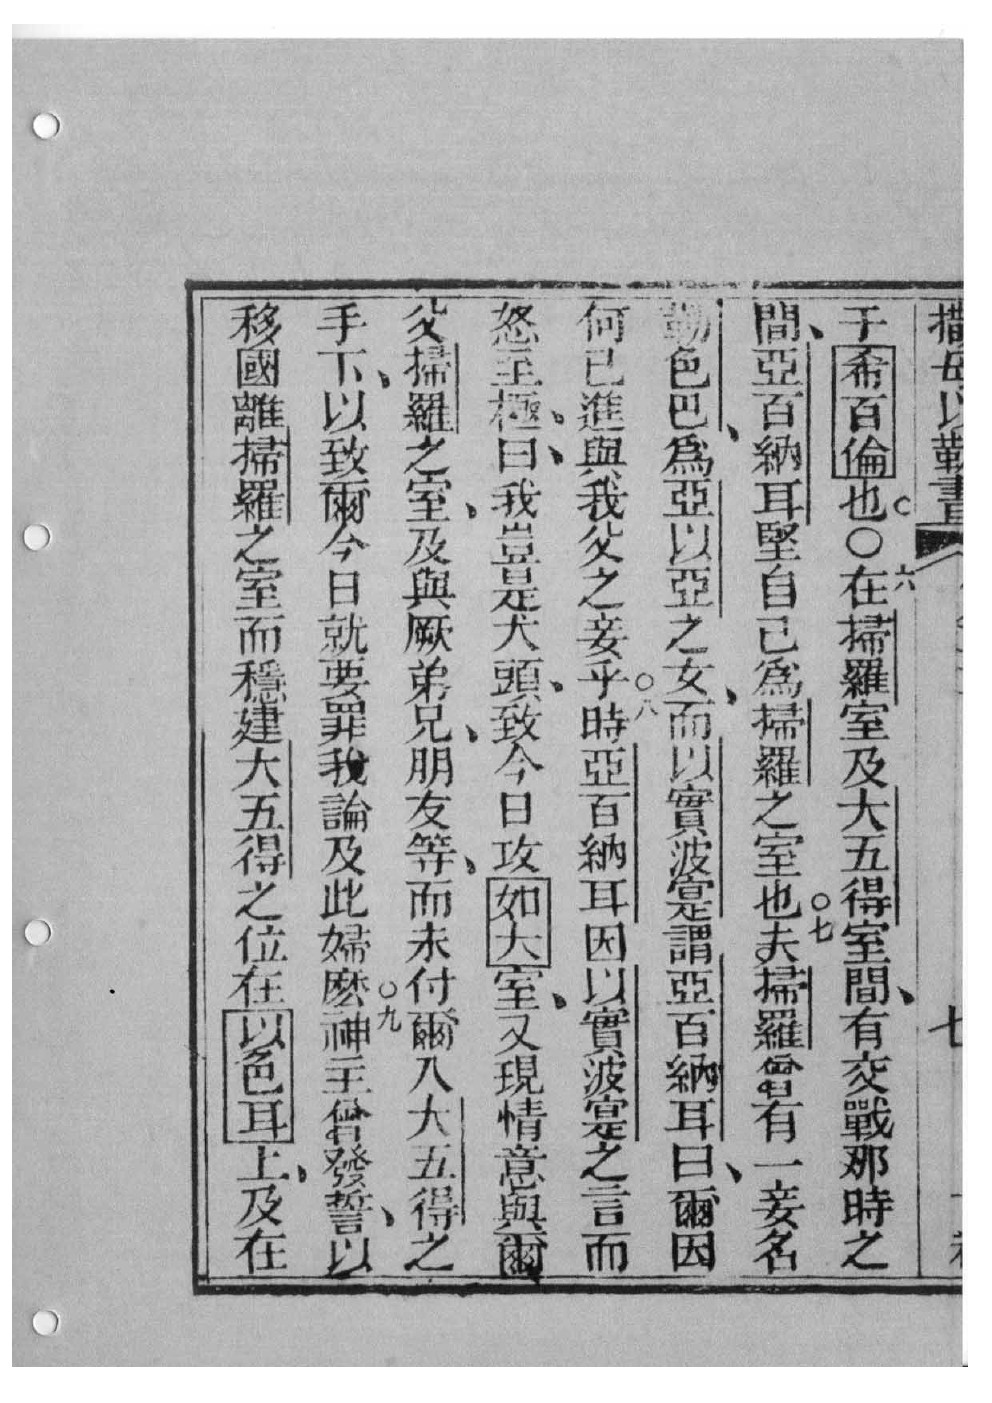 撒母以勒書
七
于希百倫也○六在掃羅室及大五得室間、有交戰那時之
間、亞百納耳堅自己爲掃羅之室也○七夫掃羅曾有一妾名
勒色巴、爲亞以亞之女、而以實波寔謂亞百納耳曰、爾因
何已進與我父之妾乎○八時亞百納耳因以實波寔之言而
怒至極、曰、我豈是犬頭、致今日攻如大室、又現情意與爾
父掃羅之室、及與厥弟兄、朋友等、而未付爾入大五得之
手下、以致爾今日就要罪我論及此婦麽○九神主曾發誓、以
移國離掃羅之室而穩建大五得之位在以色耳上、及在